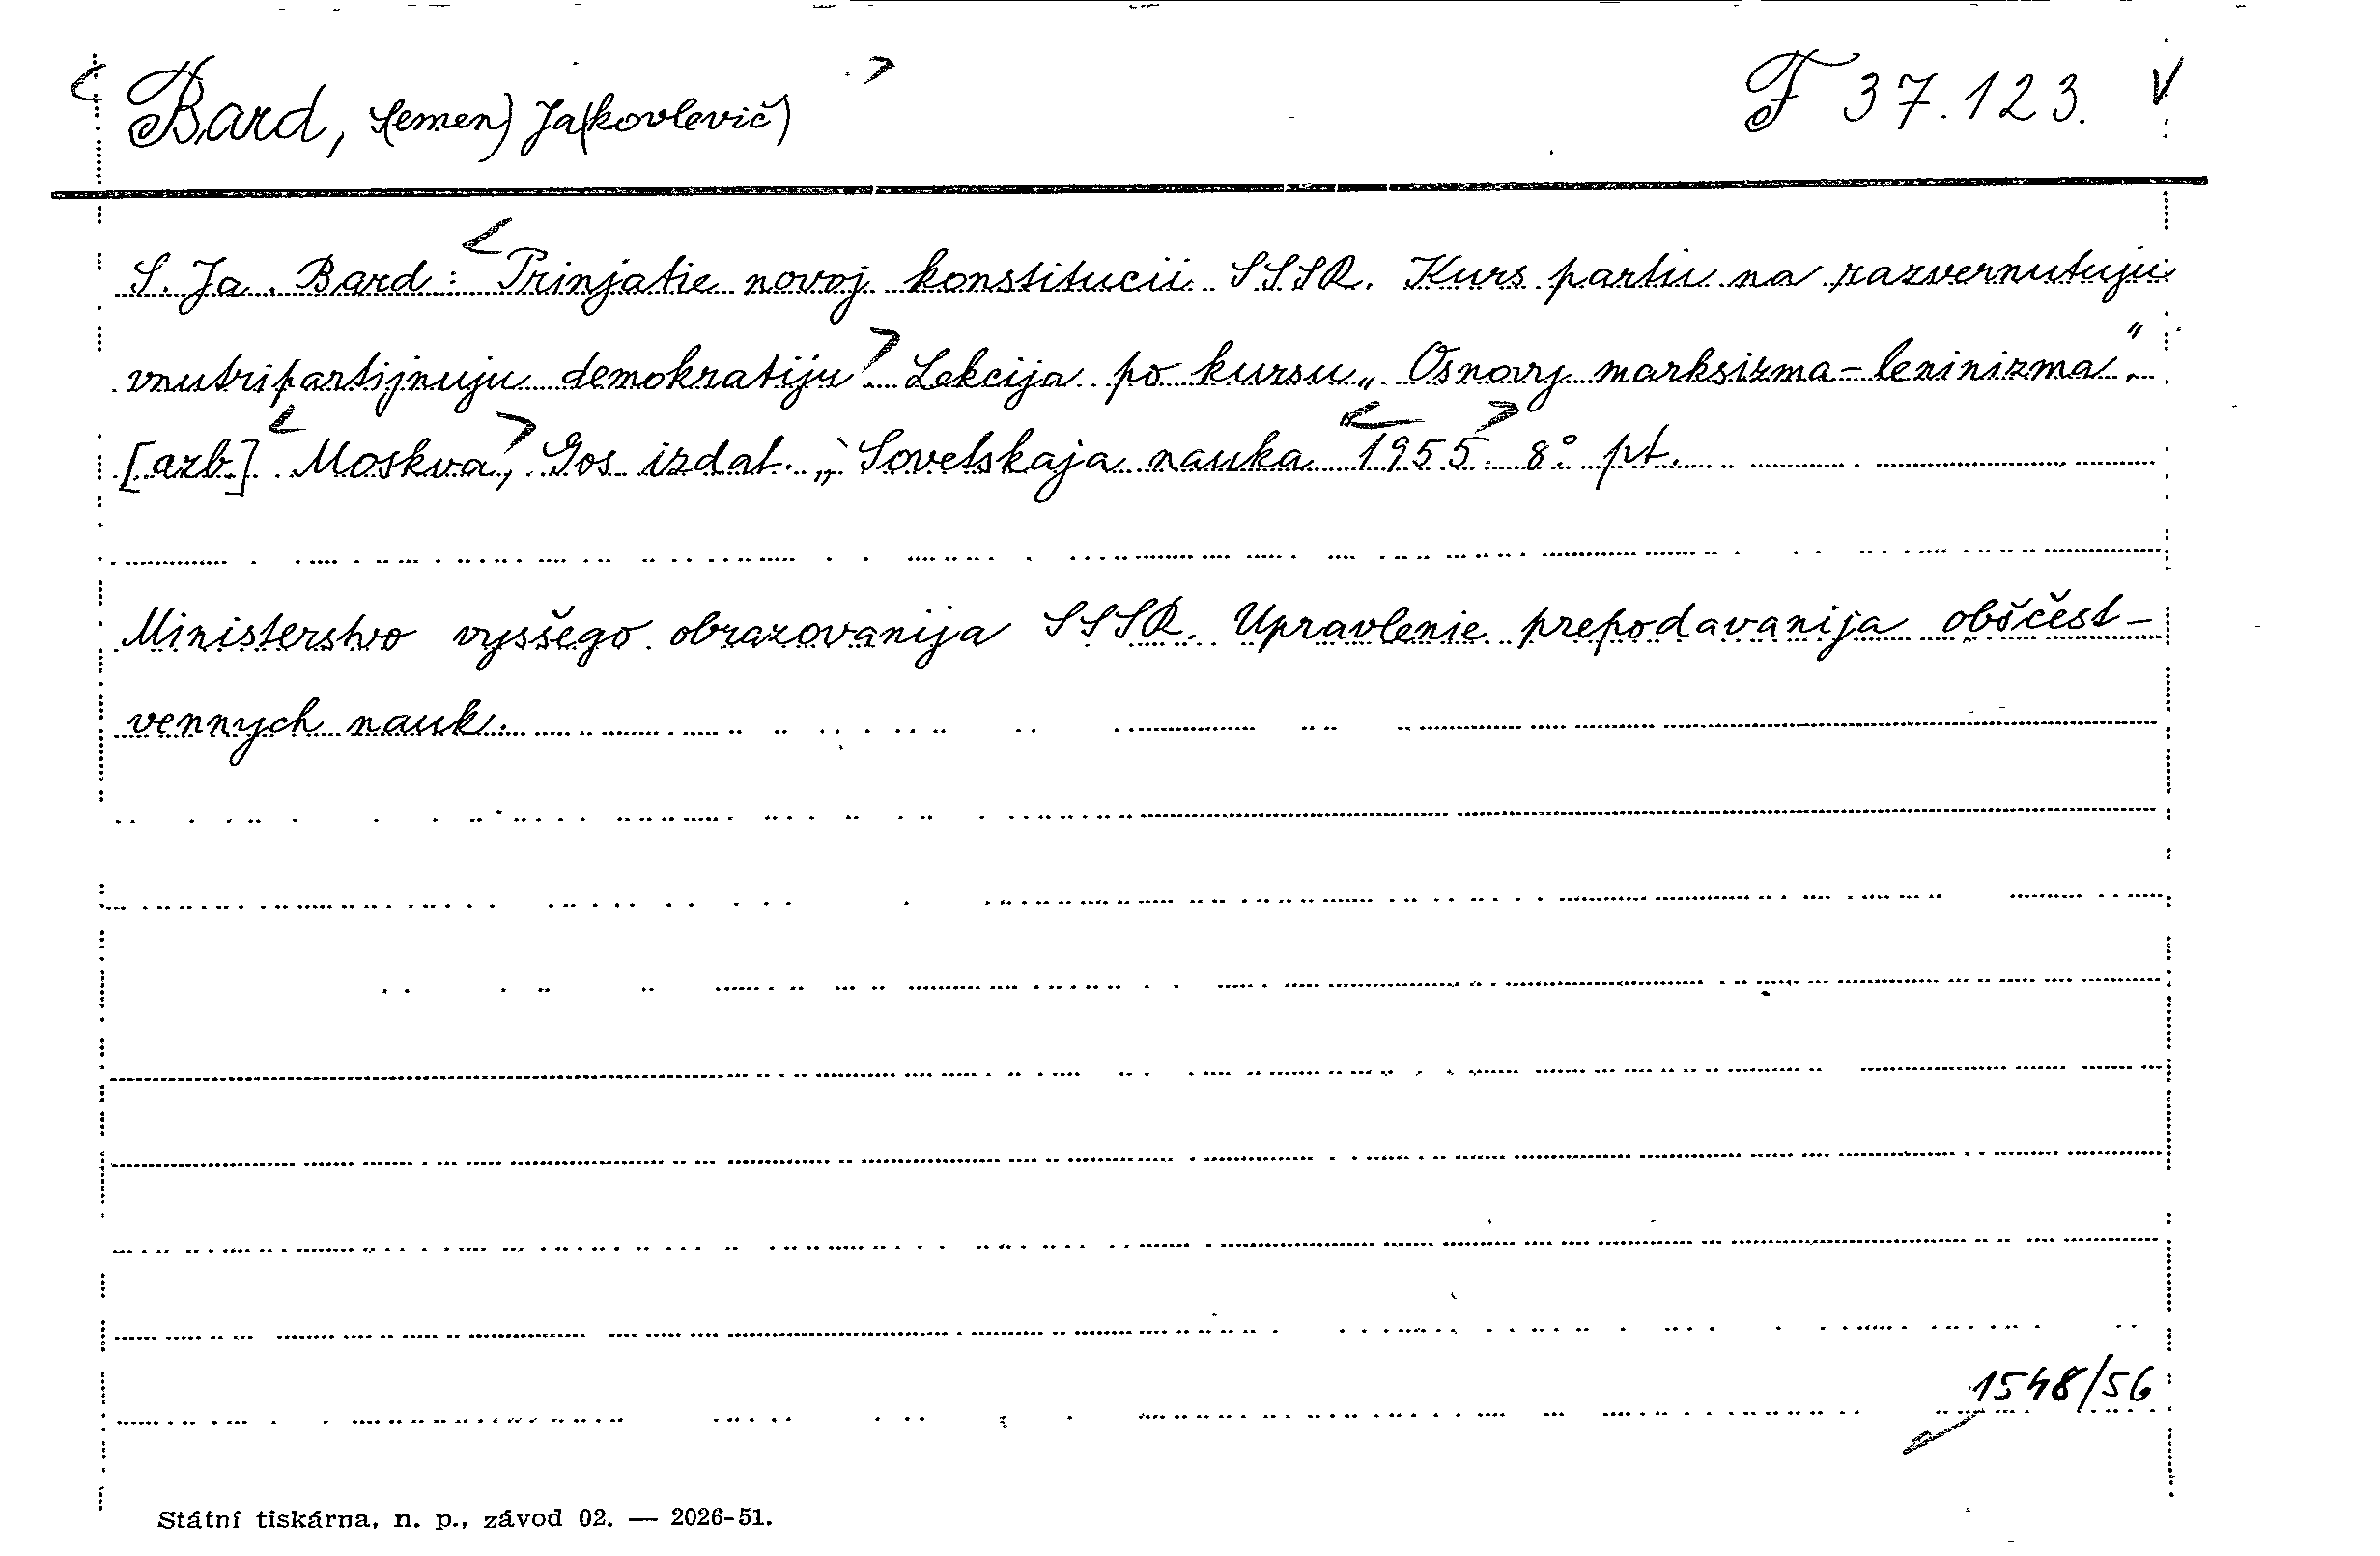 Bard, S(emen) Ja(kovlevič) F 37.123.
S. Ja. Bard: Prinjatie novoj konstitucii SSSR. Kurs partii na razvernutuju
vnutripartijnuju demokratiju. Lekcija po kursu „Osnovy marksizma-leninizma".
[azb] Moskva, Gos izdat. „Sovetskaja nauka 1955. 8° pt.
Ministerstvo vysšego obrazovanija SSSR. Upravlenie prepodavanija obščest-
vennych nauk.
1548/56
Státní tiskárna, n. p., závod 02. — 2026-51.